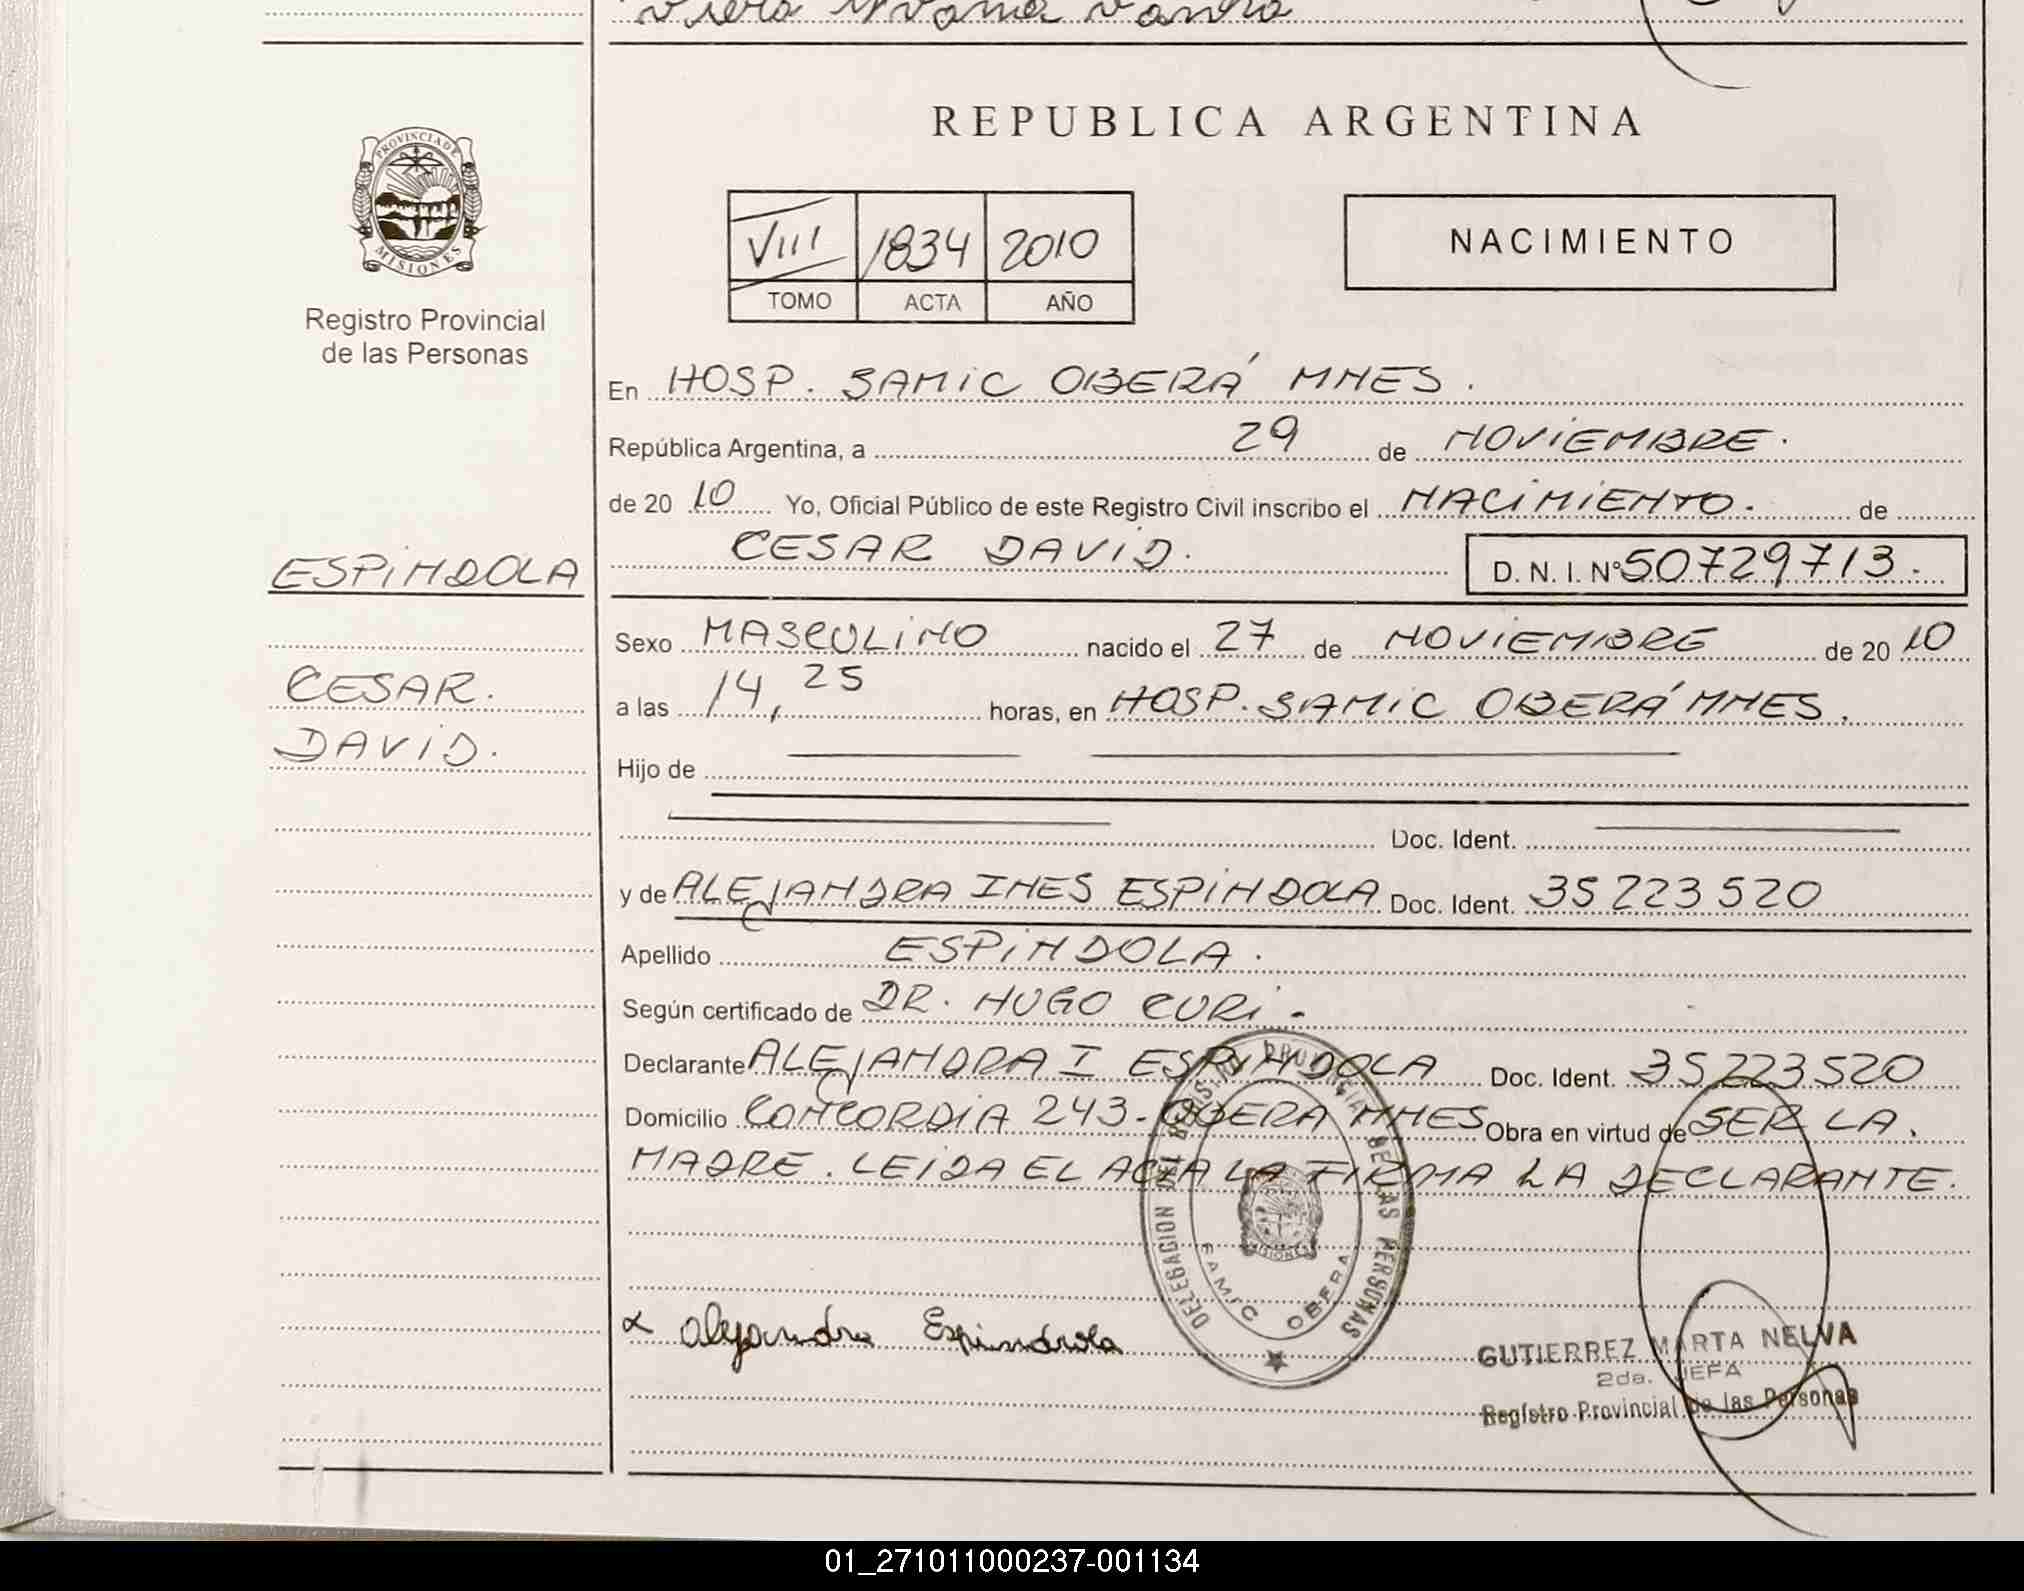 Viera Ivana Vanira
REPUBLICA ARGENTINA
PROVINCIA DE
MISIONES
Registro Provincial
de las Personas
VIII 1834 2010
TOMO ACTA AÑO
NACIMIENTO
En HOSP. SAMIC OBERÁ MNES.
República Argentina, a 29 de NOVIEMBRE.
de 20 10 Yo, Oficial Público de este Registro Civil inscribo el NACIMIENTO. de
ESPINDOLA
CESAR DAVID. D. N. I. Nº 50729713.
Sexo MASCULINO nacido el 27 de NOVIEMBRE de 20 10
CESAR.
DAVID.
a las 14, 25 horas, en HOSP. SAMIC OBERÁ MNES.
Hijo de
Doc. Ident.
y de ALEJANDRA INES ESPINDOLA Doc. Ident. 35223520
Apellido ESPINDOLA.
Según certificado de DR. HUGO CURI.
Declarante ALEJANDRA I ESPINDOLA Doc. Ident. 35223520
Domicilio CONCORDIA 243- OBERA MNES Obra en virtud de SER LA.
MADRE. LEIDA EL ACTA LA FIRMA LA DECLARANTE.
DELEGACION DEL REGISTRO PROVINCIAL DE LAS PERSONAS
SAMIC OBERA
MISIONES
x Alejandra Espindola
GUTIERREZ MARTA NELVA
2da. JEFA
Registro Provincial de las Personas
01_271011000237-001134